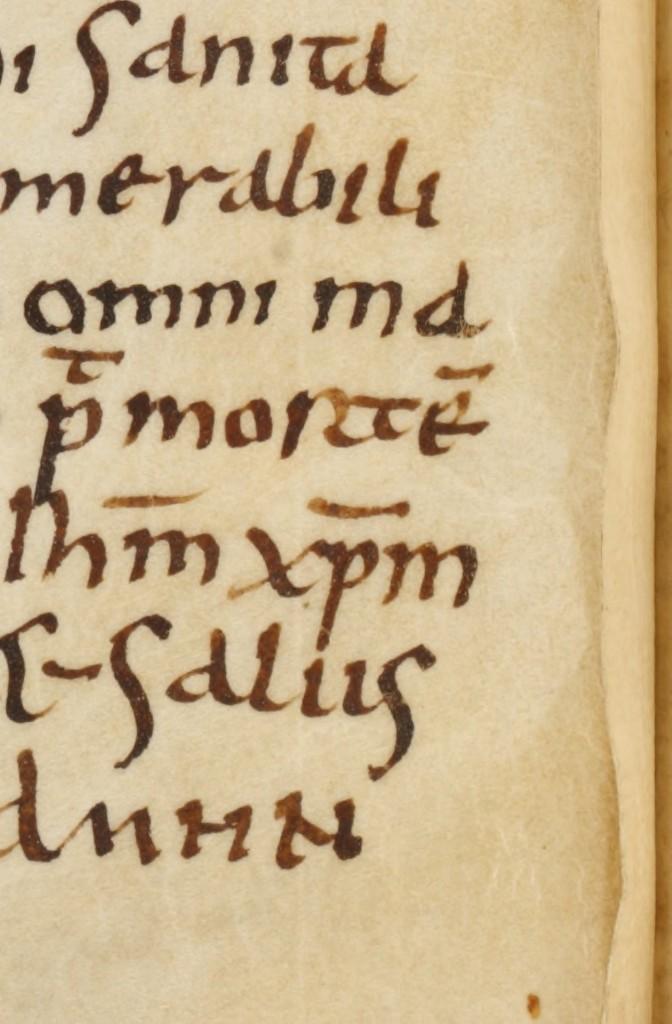 ni sanita
merabili
omni ma
p̄ mortē
ihm̄ xp̄m
salus